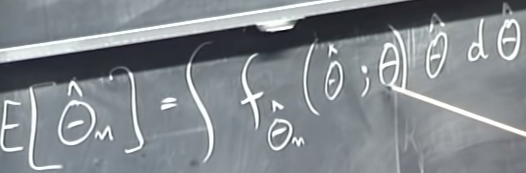 E[Θ̂ₙ] = ∫ f_Θ̂ₙ(θ̂;θ) θ̂ dθ̂